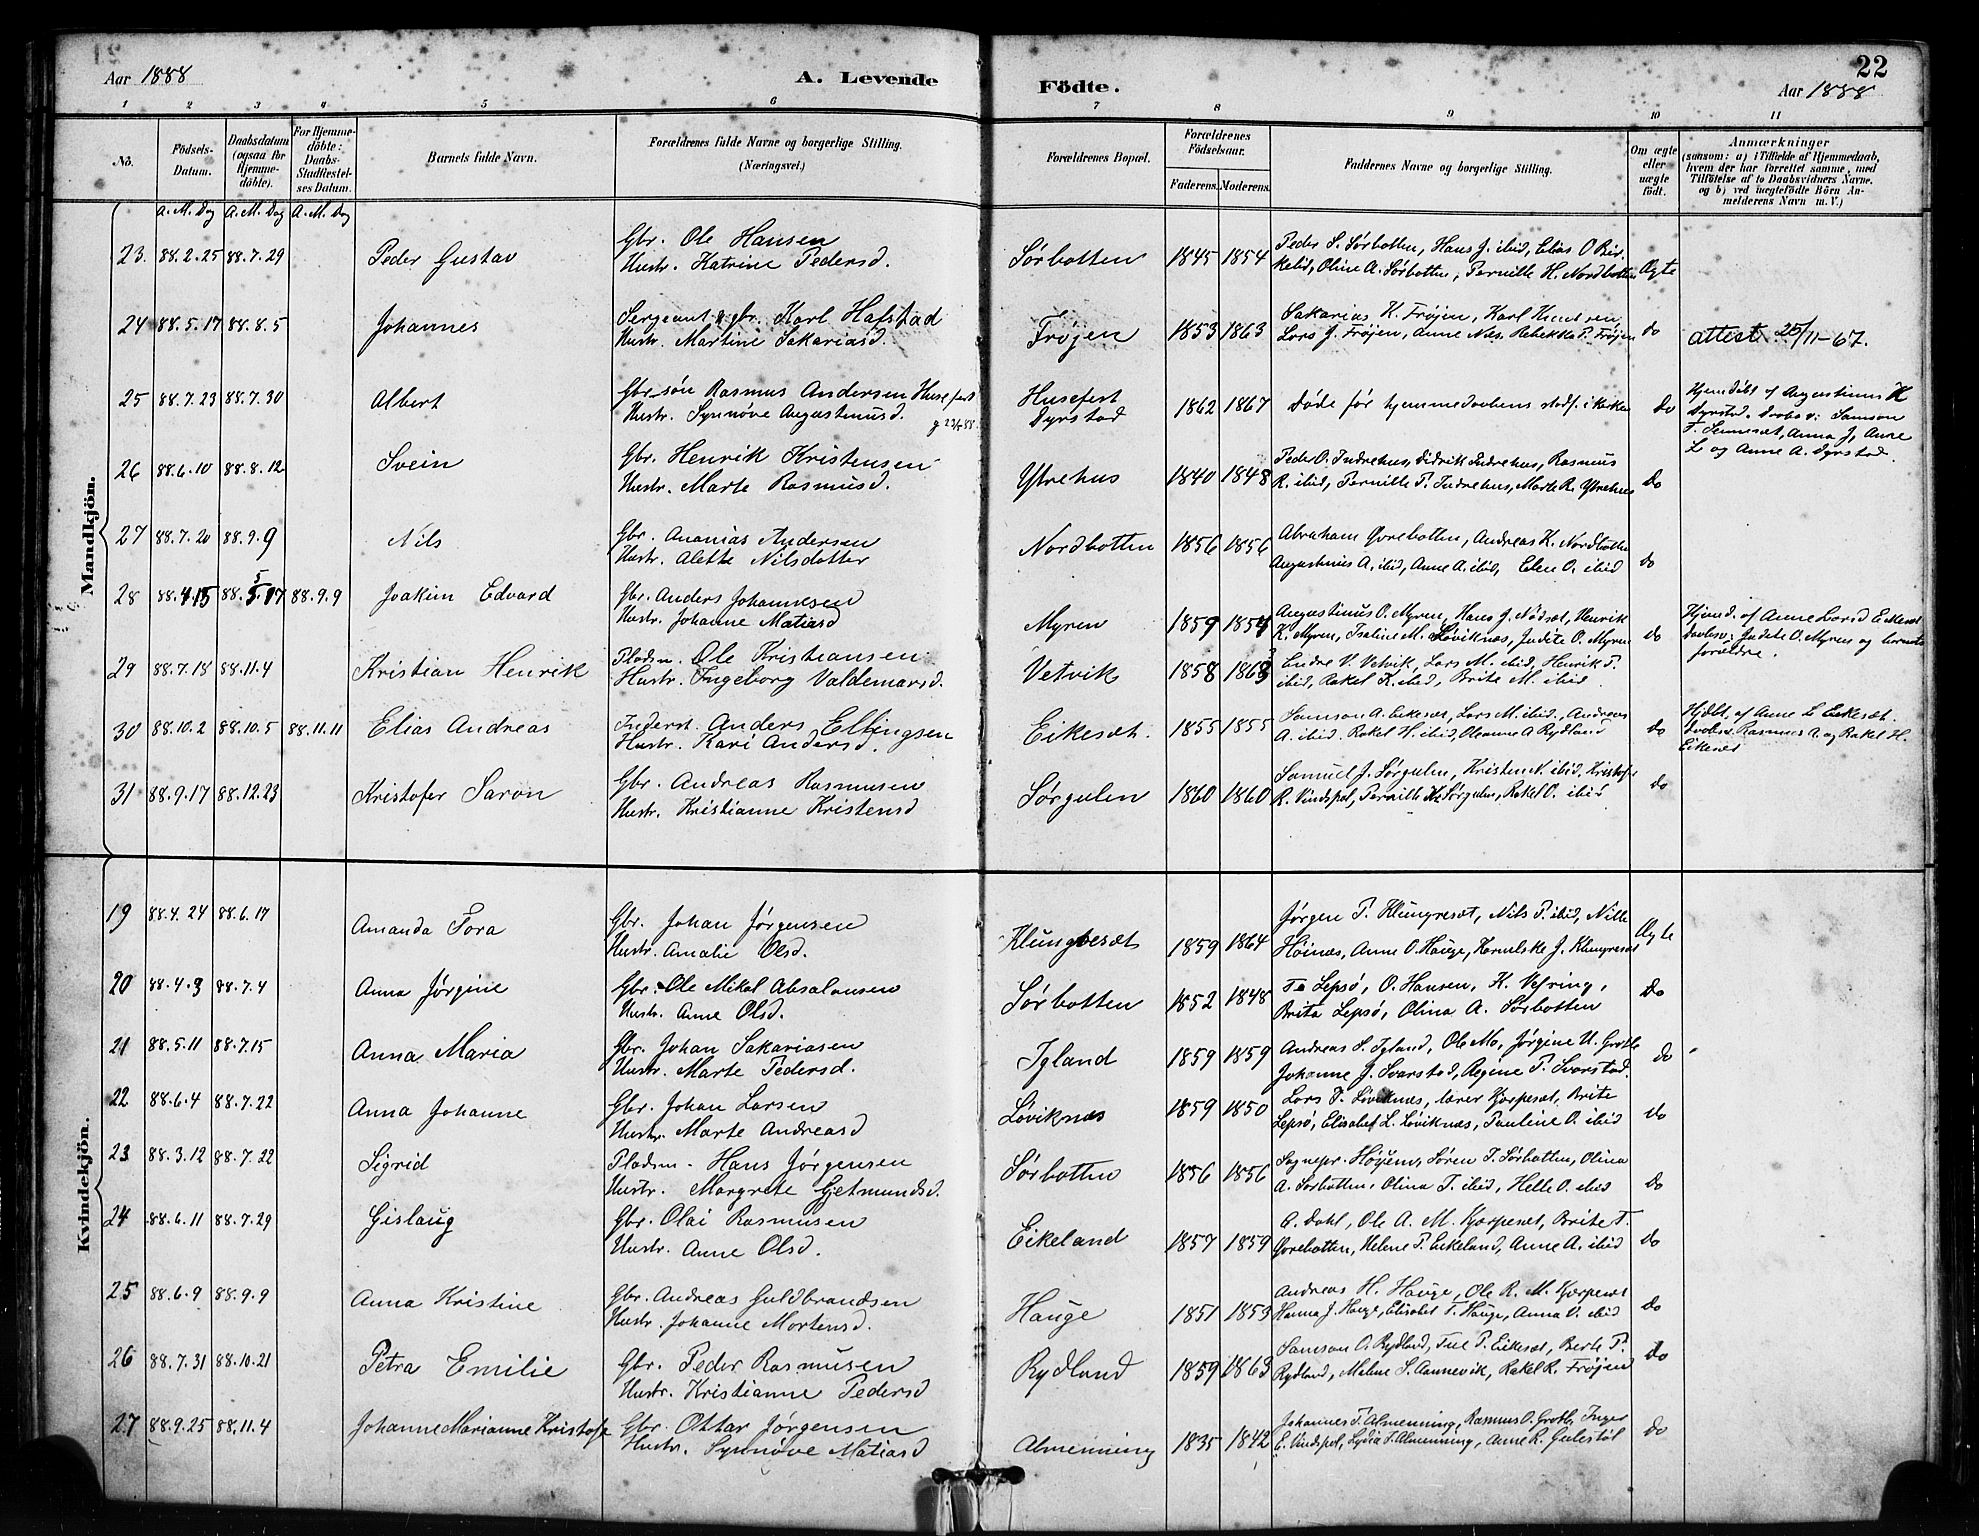 Aar 1888 A. Levende Födte. 22
Aar 1888
1 2 3 4 5 6 7 8 9 10 11
No. Födsels-Datum. Daabsdatum (ogsaa for Hjemme-döbte). For Hjemme-döbte: Daabs-Stadfæstel-ses Datum. Barnets fulde Navn. Forældrenes fulde Navne og borgerlige Stilling. (Næringsvei.) Forældrenes Bopæl. Forældrenes Födselsaar. Faderens. Moderens. Faddernes Navne og borgerlige Stilling. Om ægte eller uægte födt. Anmærkninger (saasom: a) i Tilfælde af Hjemmedaab, hvem der har forrettet samme, med Tilföielse af to Daabsvidners Navne, og b) ved uægtefödte Börn An-melderens Navn m. V.)
A. M. Dag A. M. Dag A. M. Dag
Mandkjön.
23. 88.2.25 88.7.29 Peder Gustav Gbr. Ole Hansen Sørbotten 1845 1854 Peder S. Sørbotten, Hans J. ibid, Elias O Bir- Ægte
Hustr. Katrine Pedersd. kelid, Oline A. Sørbotten, Pernille H. Nordbotten
24 88.5.17 88.8.5 Johannes Sergeant & gbr. Karl Hafstad Frøjen 1853 1863 Sakarias K. Frøjen, Karl Knudsen do attest 25/11-67.
Hustr. Martine Sakariasd. Lars J. Frøjen, Anne Nes. Rebekka P. Frøjen
25 88.7.23 88.7.30 Albert Gbr_søn Rasmus Andersen Husefest Husefest 1862 1867 Døde før hjemmedaabens stadf. i kirken Do Hjemdøbt af Augustinus K
Hustr. Synnøve Augustinusd. Dyrstad Dyrstad. Daabsv: Samson
T. Senneset, Anna J, Anne
L og Anne A. Dyrstad.
26 88.6.10 88.8.12 Svein Gbr. Henrik Kristensen Ytrehus 1840 1848 Peder O. Indrehus, Didrik Indrehus, Rasmus
Hustr. Marte Rasmusd. R. ibid, Pernille P. Indrehus, Marte R. Ytrehus do
27 88.7.20 88.9.9 Nils Gbr. Ananias Andersen Nordbotten 1856 1856 Abraham Øvrebotten, Andreas K. Nordbotten
Hustr. Alette Nilsdatter Augustinus A. ibid, Anne A. ibid, Elen O. ibid do
28 88.4.15 88.5.17 88.9.9 Joakim Edvard Gbr. Anders Johannesen Myren 1859 1854 Augustinus O. Myren, Hans J. Nødset, Henrik do
Hustr. Johanne Matiasd K. Myren, Iseline M. Løviknæs, Judite O. Myren
forældre.
29 88.7.18 88.11.4 Kristian Henrik Pladsm. Ole Kristiansen Vetvik 1858 1863 Endre V. Vetvik, Lars M. ibid, Henrik P.
Hustr. Ingeborg Valdemarsd. ibid, Rakel K. ibid, Brite M. ibid
30 88.10.2 88.10.5 88.11.11 Elias Andreas Inderst. Anders Ellingsen Eikesæt. 1855 1855 Samson A. Eikesæt, Lars M. ibid, Andreas do Hjdbt. af Anne L Eikesæt.
Hustr. Kari Andersd. A. ibid. Rakel H. ibid, Oleanne A Rydland Daabsv. Rasmus A. og Rakel H.
Eikeset
31 88.9.17 88.12.23 Kristofer Saron Gbr. Andreas Rasmusen Sørgulen 1860 1860 Samuel J. Sørgulen, Kristen N. ibid, Kristofer do
Hustr. Kristianne Kristensd R. Vindspol, Pernille K. Sørgulen, Rakel O. ibid
Kvindekjön.
19 88.4.24 88.6.17 Amanda Tora Gbr. Johan Jørgensen Klungresæt 1859 1864 Jørgen P. Klungresæt, Nils P. ibid, Nille Ægte
Hustr. Amalie Olsd. Høinæs, Anne O. Hauge, Kornelske J. Klungresæt
20 88.4.3 88.7.4 Anna Jørgine Gbr. Ole Mikal Absalonsen Sørbotten 1852 1848 Lepsø, O. Hansen, K. Vefring, Do
Hustr. Anne Olsd. Brita Lepsø, Olina A. Sørbotten
21 88.5.11 88.7.15 Anna Maria Gbr. Johan Sakariasen Igland 1859 1859 Andreas S. Igland, Ole Mo, Jørgine U. Grotle do
Hustr. Marte Pedersd. Johanne J. Svarstad, Regine P. Svarstad.
22 88.6.4 88.7.22 Anna Johanne Gbr. Johan Larsen Løviknæs 1859 1850 Lars D. Løviknæs, lærer Kjærpesæt, Brite do
Hustr. Marte Andreasd Lepsø, Elisabet L. Løviknæs, Pauline O. ibid
23 88.3.12 88.7.22 Sigrid Pladsm. Hans Jørgensen Sørbotten 1856 1856 Sognepr. Høyem, Søren P. Sørbotten, Olina do
Hustr. Margrete Gjetmundsd. A. Sørbotten, Olina T. ibid, Helle O. ibid
24 88.6.11 88.7.29 Gislaug Gbr. Olai Rasmusen Eikeland 1857 1859 C. Dahl, Ole A. M. Kjærpesæt, Brite T. do
Hustr. Anne Olsd. Øvrebotten, Helene P. Eikeland, Anne A. ibid
25 88.6.9 88.9.9 Anna Kristine Gbr. Andreas Guldbrandsen Hauge 1851 1853 Andreas H. Hauge, Ole R. M. Kjærpeset do
Hustr. Johanne Mortensd. Hanna J. Hauge, Elisabet T. Hauge, Anna O. ibid
26 88.7.31 88.10.21 Petra Emilie Gbr. Peder Rasmusen Rydland 1859 1863 Samson O. Rydland, Tue P. Eikesæt, Berte P. do
Hustr. Kristianne Pedersd Rydland, Malene S. Aannevik, Rakel R. Frøjen
27 88.9.25 88.11.4 Johanne Marianne Kristofa Gbr. Ottar Jørgensen Almenning 1835 1842 Johannes P. Almenning, Rasmus O. Grotle, Inger do
Hustr. Synnøve Matiasd E. Vindspol, Lydia J. Almenning, Anne R. Gulestøl